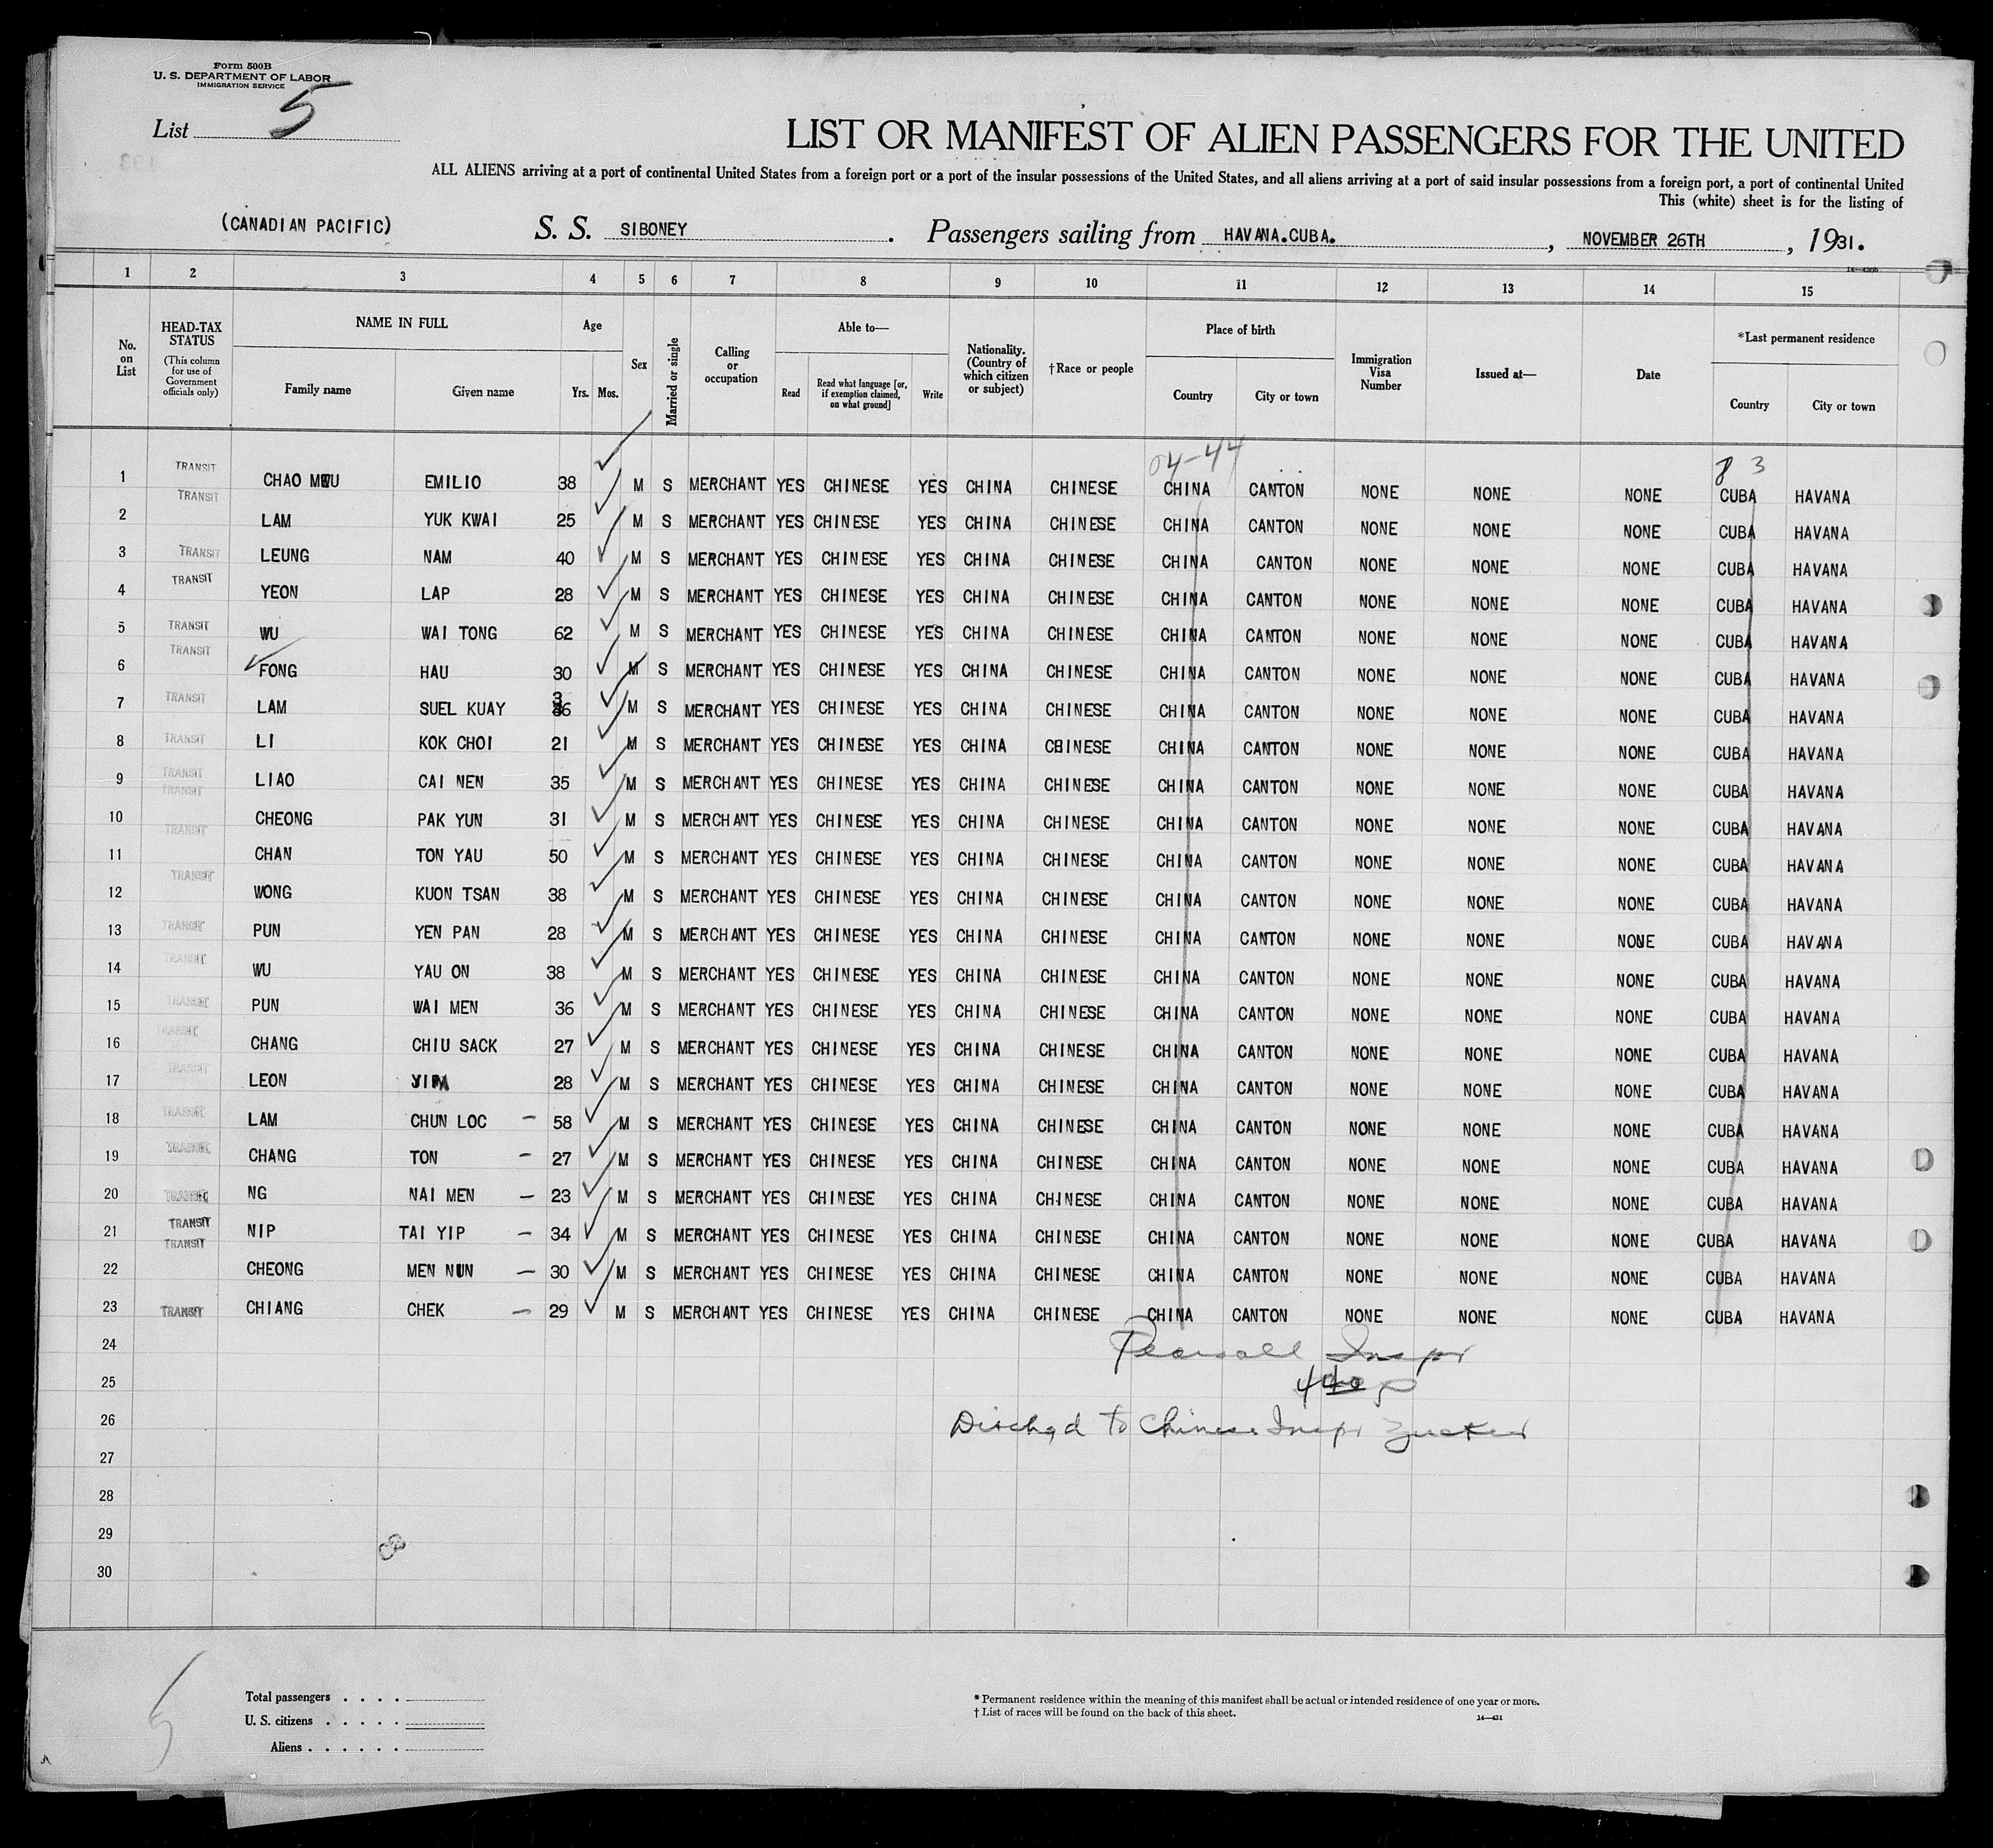 Form 500B
U. S. DEPARTMENT OF LABOR
IMMIGRATION SERVICE
List 5
LIST OR MANIFEST OF ALIEN PASSENGERS FOR THE UNITED
ALL ALIENS arriving at a port of continental United States from a foreign port or a port of the insular possessions of the United States, and all aliens arriving at a port of said insular possessions from a foreign port, a port of continental United
This (white) sheet is for the listing of
(CANADIAN PACIFIC) S. S. SIBONEY. Passengers sailing from HAVANA.CUBA., NOVEMBER 26TH, 1931.
14—430b
1 2 3 4 5 6 7 8 9 10 11 12 13 14 15
No. on List
HEAD-TAX STATUS (This column for use of Government officials only)
NAME IN FULL
Family name
Given name
Age
Yrs. Mos.
Sex
Married or single
Calling or occupation
Able to—
Read
Read what language [or, if exemption claimed, on what ground]
Write
Nationality. (Country of which citizen or subject)
†Race or people
Place of birth
Country
City or town
Immigration Visa Number
Issued at—
Date
*Last permanent residence
Country
City or town
04-44 8 3
1 TRANSIT CHAO EMILIO 38 M S MERCHANT YES CHINESE YES CHINA CHINESE CHINA CANTON NONE NONE NONE CUBA HAVANA
2 TRANSIT LAM YUK KWAI 25 M S MERCHANT YES CHINESE YES CHINA CHINESE CHINA CANTON NONE NONE NONE CUBA HAVANA
3 TRANSIT LEUNG NAM 40 M S MERCHANT YES CHINESE YES CHINA CHINESE CHINA CANTON NONE NONE NONE CUBA HAVANA
4 TRANSIT YEON LAP 28 M S MERCHANT YES CHINESE YES CHINA CHINESE CHINA CANTON NONE NONE NONE CUBA HAVANA
5 TRANSIT WU WAI TONG 62 M S MERCHANT YES CHINESE YES CHINA CHINESE CHINA CANTON NONE NONE NONE CUBA HAVANA
6 TRANSIT FONG HAU 30 M S MERCHANT YES CHINESE YES CHINA CHINESE CHINA CANTON NONE NONE NONE CUBA HAVANA
7 TRANSIT LAM SUEL KUAY 36 M S MERCHANT YES CHINESE YES CHINA CHINESE CHINA CANTON NONE NONE NONE CUBA HAVANA
8 TRANSIT LI KOK CHOI 21 M S MERCHANT YES CHINESE YES CHINA CBINESE CHINA CANTON NONE NONE NONE CUBA HAVANA
9 TRANSIT LIAO CAI NEN 35 M S MERCHANT YES CHINESE YES CHINA CHINESE CHINA CANTON NONE NONE NONE CUBA HAVANA
10 TRANSIT CHEONG PAK YUN 31 M S MERCHANT YES CHINESE YES CHINA CHINESE CHINA CANTON NONE NONE NONE CUBA HAVANA
11 TRANSIT CHAN TON YAU 50 M S MERCHANT YES CHINESE YES CHINA CHINESE CHINA CANTON NONE NONE NONE CUBA HAVANA
12 TRANSIT WONG KUON TSAN 38 M S MERCHANT YES CHINESE YES CHINA CHINESE CHINA CANTON NONE NONE NONE CUBA HAVANA
13 TRANSIT PUN YEN PAN 28 M S MERCHANT YES CHINESE YES CHINA CHINESE CHINA CANTON NONE NONE NONE CUBA HAVANA
14 TRANSIT WU YAU ON 38 M S MERCHANT YES CHINESE YES CHINA CHINESE CHINA CANTON NONE NONE NONE CUBA HAVANA
15 TRANSIT PUN WAI MEN 36 M S MERCHANT YES CHINESE YES CHINA CHINESE CHINA CANTON NONE NONE NONE CUBA HAVANA
16 TRANSIT CHANG CHIU SACK 27 M S MERCHANT YES CHINESE YES CHINA CHINESE CHINA CANTON NONE NONE NONE CUBA HAVANA
17 TRANSIT LEON YIM 28 M S MERCHANT YES CHINESE YES CHINA CHINESE CHINA CANTON NONE NONE NONE CUBA HAVANA
18 TRANSIT LAM CHUN LOC — 58 M S MERCHANT YES CHINESE YES CHINA CHINESE CHINA CANTON NONE NONE NONE CUBA HAVANA
19 TRANSIT CHANG TON — 27 M S MERCHANT YES CHINESE YES CHINA CHINESE CHINA CANTON NONE NONE NONE CUBA HAVANA
20 TRANSIT NG NAI MEN — 23 M S MERCHANT YES CHINESE YES CHINA CHINESE CHINA CANTON NONE NONE NONE CUBA HAVANA
21 TRANSIT NIP TAI YIP — 34 M S MERCHANT YES CHINESE YES CHINA CHINESE CHINA CANTON NONE NONE NONE CUBA HAVANA
22 TRANSIT CHEONG MEN NUN — 30 M S MERCHANT YES CHINESE YES CHINA CHINESE CHINA CANTON NONE NONE NONE CUBA HAVANA
23 TRANSIT CHIANG CHEK — 29 M S MERCHANT YES CHINESE YES CHINA CHINESE CHINA CANTON NONE NONE NONE CUBA HAVANA
24 Pearsall Inspr
25 440 p
26 Dischgd to Chinese Inspr Zucker
27
28
29
30
5
Total passengers . . . .
U. S. citizens . . . . .
Aliens . . . . . .
* Permanent residence within the meaning of this manifest shall be actual or intended residence of one year or more.
† List of races will be found on the back of this sheet.
14—431